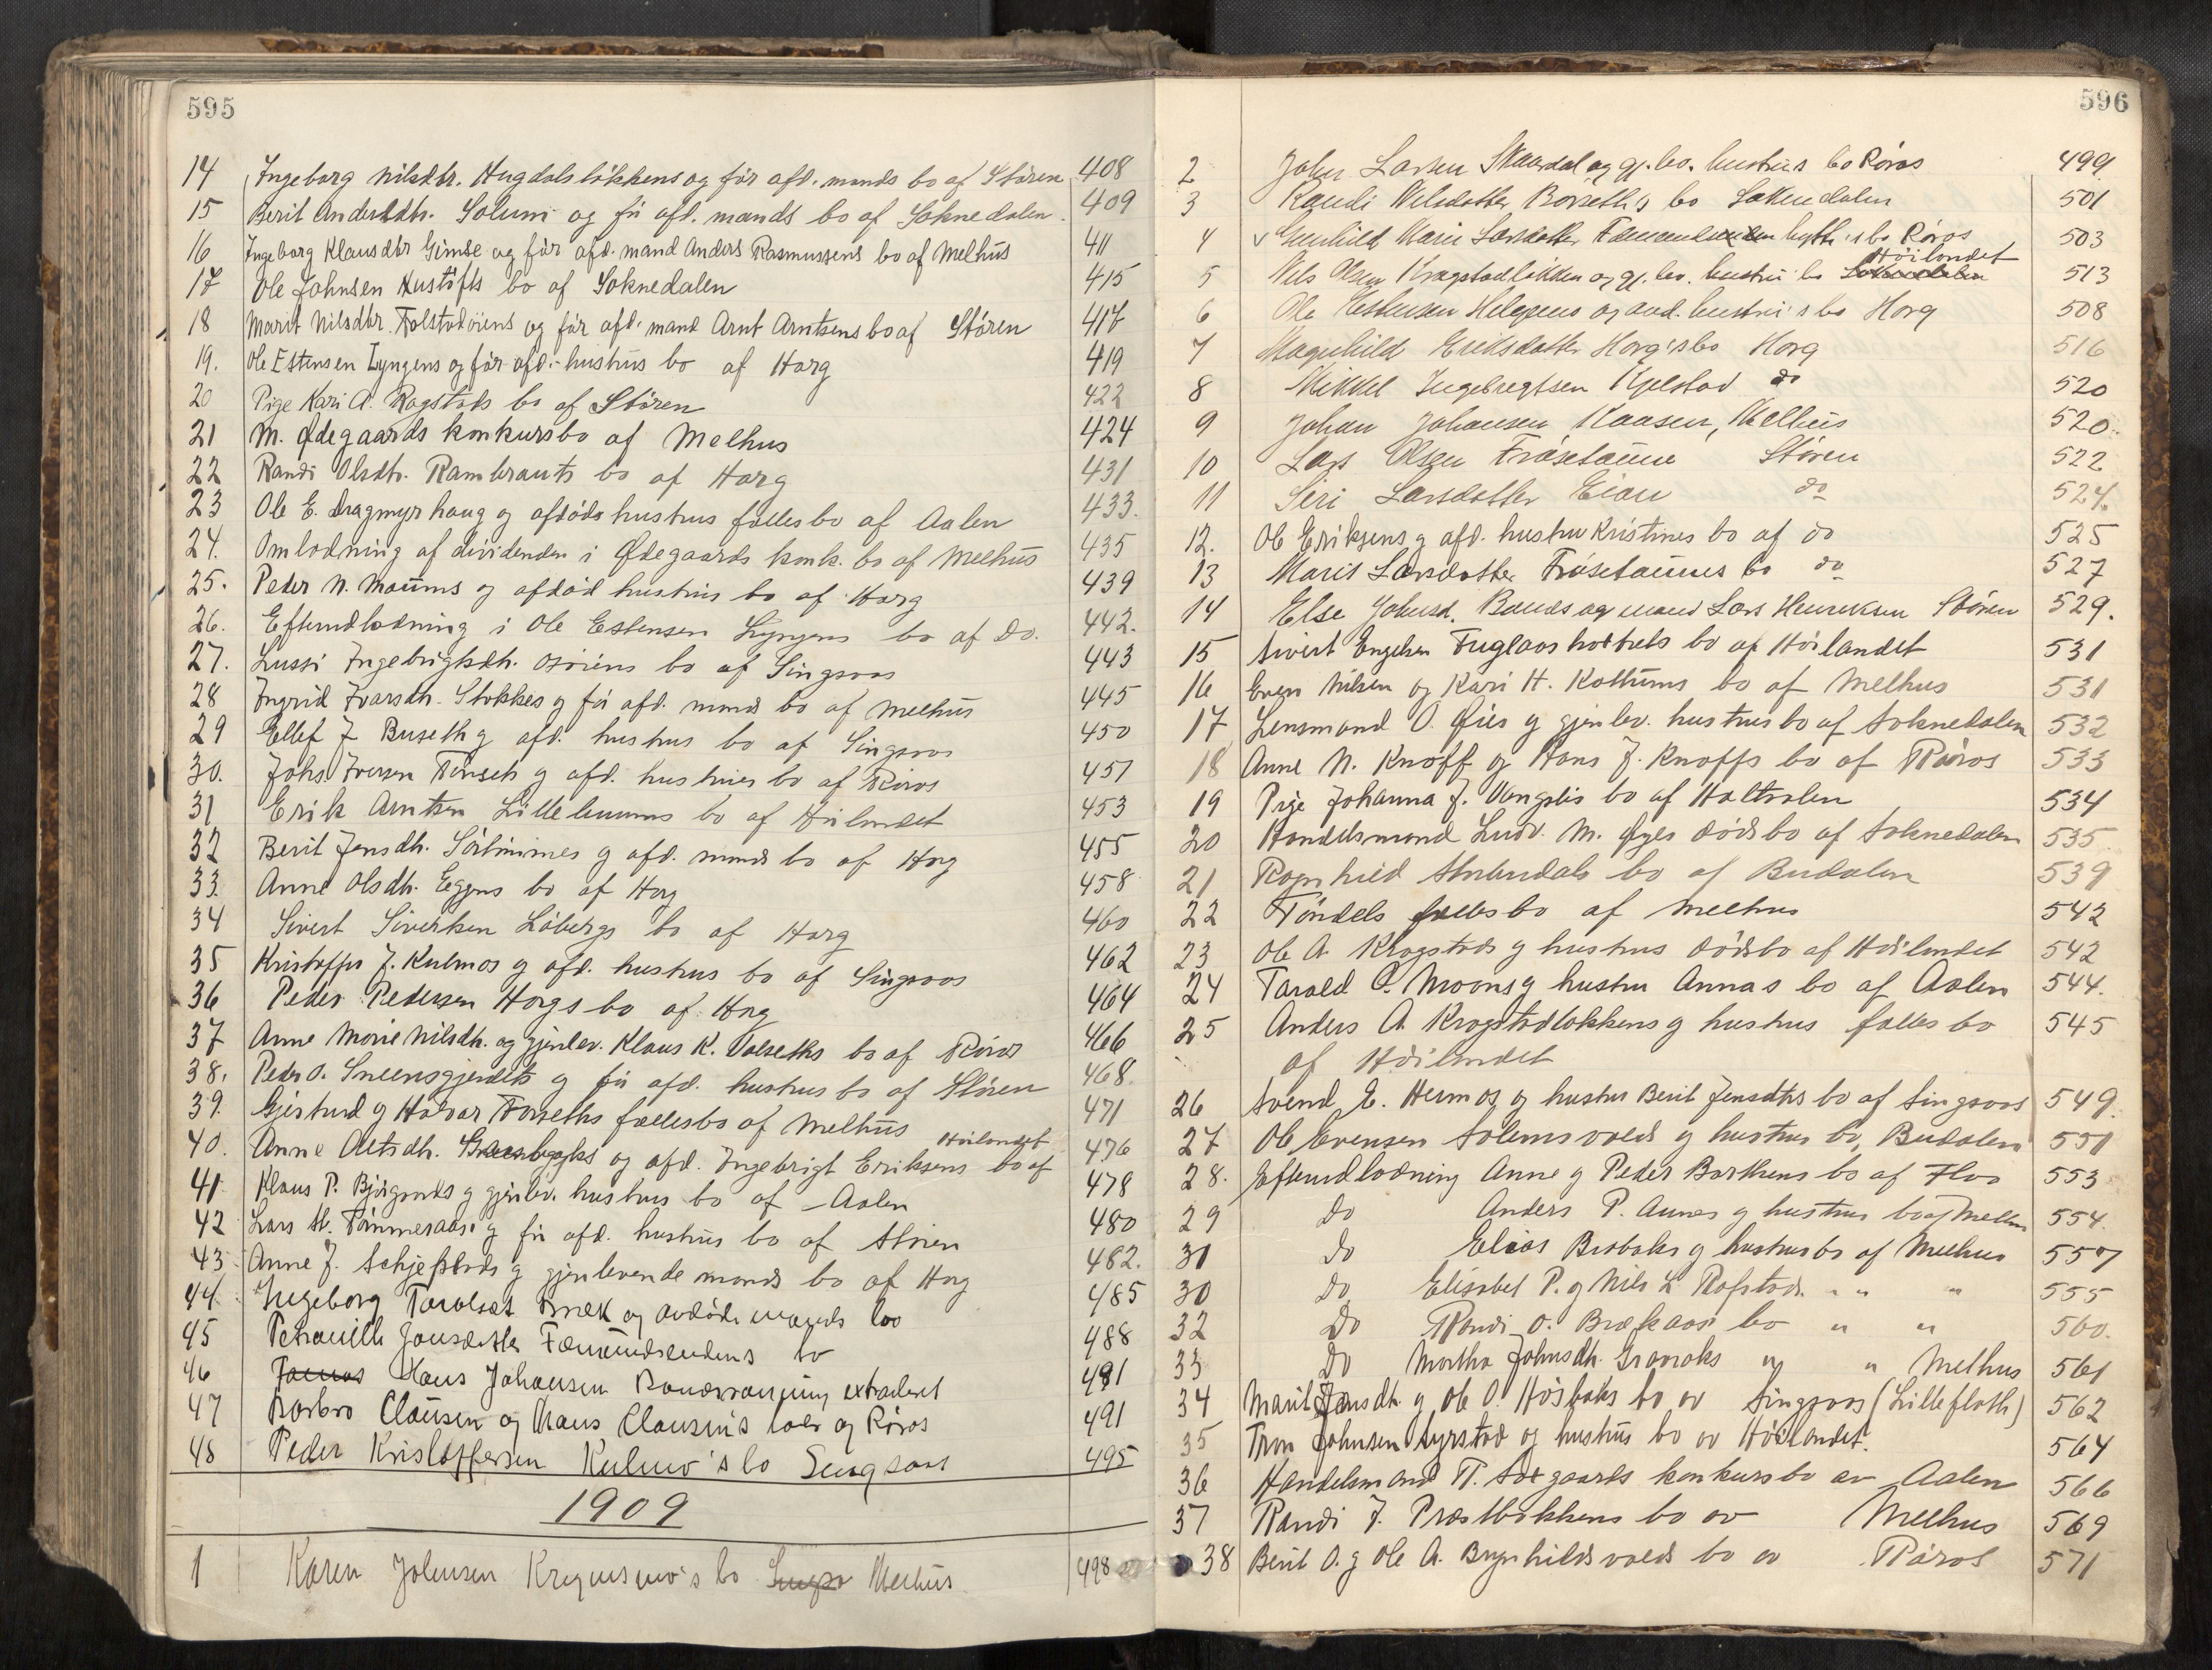 595
14 Ingeborg Nilsdtr. Hugdalsløkkens og før afd. mands bo af Støren 408
15 Berit Andersdtr. Solums og før afd. mands bo af Soknedalen. 409
16 Ingeborg Klausdtr Gimse og før afd. mand Anders Rasmussens bo af Melhus 411
17 Ole Johnsen Hustøfts bo af Soknedalen 415
18 Marit Nilsdtr. Folstadøiens og før afd. mand Arnt Arntsens bo af Støren 417
19. Ole Estensen Lyngens og før afd. hustrus bo af Horg 419
20 Pige Kari A. Rogstads bo af Støren 422
21 M. Ødegaards konkursbo af Melhus 424
22 Randi Olsdtr. Rambrauts bo af Horg 431
23 Ole E. Dragmyrhaug og afdøde hustrus fællesbo af Aalen 433.
24. Omlodning af dividenden i Ødegaards konk. bo af Melhus 435
25. Peder N. Moums og afdød hustrus bo af Horg 439
26. Efterudlodning i Ole Estensen Lyngens bo af Do. 442.
27. Lussi Ingebrigtsdtr. Osøiens bo af Singsaas 443
28 Ingrid Ivarsdtr. Stokkes og før afd. mands bo af Melhus 445
29 Ellef J Buseth og afd. hustrus bo af Singsaas 450
30. Johs. Iversen Tønseth og afd. hustrues bo af Røros 451
31 Erik Arntsen Lillelunums bo af Høilandet 453
32 Berit Jensdtr. Sørtømmes og afd. mands bo af Horg 455
33. Anne Olsdtr. Eggens bo af Horg 458
34 Sivert Sivertsen Løbergs bo af Horg 460
35 Kristoffer J. Kulmos og afd. hustrus bo af Singsaas 462
36 Peder Pedersen Horgs bo af Horg 464
37 Anne Marie Nilsdtr. og gjenlev. Klaus K. Galseths bo af Røros 466
38. Peder O. Sneensgjerdets og før afd. hustrus bo af Støren 468.
39. Gjertrud og Halvar Forseths fællesbo af Melhus 471
Høilandet
40. Anne Oltsdtr. og afd. Ingebrigt Eriksens bo af 476
41 Klaus P. Bjørgaards og gjenlev. hustrus bo af Aalen 478
42 Lars H. Tømmeraas og før afd. hustrus bo af Støren 480
43 Anne J. Schjefstads og gjenlevende mands bo af Horg 482.
44. Ingeborg Taralsdt. og avdøde mands bo 485
45 Petronille Jonsdatter Fæmundsendens bo 488
46 Hans Johansen extraderet 491
47 Barbro Clausen og Claus Clausens bo og Røros 491
48 Peder Kristoffersen Kulmo's bo Singsaas 495
1909
1 Karen Johnsen bo Singsa Melhus 498
596
2 John Larsen Skaardal og gj. lev. hustrus bo Røros 499
3 Randi Nilsdatter Borseth's bo Soknedalen 501
4 Gunhild Marie Larsdatter bo Røros 503
Høilandet
5 Nils Olsen Krogstadløkken og gj. lev. hustru's bo Soknedalen 513
6 Ole Estensen og avd. hustru's bo Horg 508
7 Magnhild Eriksdatter Horg's bo Horg 516
8 Mikkel Ingebregtsen Kjelstad do 520
9 Johan Johansen Kaasen, Melhus 520.
10 Lars Olsen Frøsetaune Støren 522
11 Siri Larsdatter Eian do 524.
12. Ole Eriksens og afd. hustru Kristines bo af do 525
13 Marit Larsdatter Frøsetaunes bo do 527
14 Else Johnsd. og mand Lars Henriksen Støren 529.
15 Sivert Engelsen Fuglaas bo af Høilandet 531
16 Even Nilsen og Kari H. Kottums bo af Melhus 531
17 Lensmand O. Øies og gjenlev. hustrus bo af Soknedalen 532
18 Anne N. Knoff og Hans J. Knoffs bo af Røros 533
19 Pige Johanna J. Vongslis bo af Holtaalen 534
20 Handelsmand Ludv. M. Øyes dødsbo af Soknedalen 535.
21 Ragnhild Storlundals bo af Budalen 539
22 Tøndels fællesbo af Melhus 542
23 Ole A. Krogstads og hustrus dødsbo af Høilandet 542
24 Tarald P. Moens og hustru Annas bo af Aalen 544.
25 Anders A. Krogstadløkkens og hustrus fælles bo 545
af Høilandet
26 Svend E. Hermos og hustru Berit Jensdtrs bo af Singsaas 549.
27 Ole Evensen Solemsvolds og hustrus bo, Budalen 551
28. Efterudlodning Anne og Peder Barthens bo af Flaa 553
29 Do Anders P. Aunes og hustrus bo af Melhus 554.
31 Do Elias Brobaks og hustrus bo af Melhus 557
30 Do Elisabet P. og Nils L Rofstads " " " 555
32 Do Randi O. Brækaas bo " " 560.
33 Do Martha Johnsdtr. Graaraks " " Melhus 561
34 Marit Jensdtr. og Ole O. Høsbaks bo av Singsaas (Lillefloth) 562
35 Tron Johnsen Syrstad og hustrus bo av Høilandet. 564
36 Handelsmand T. Sogaards konkursbo av Aalen 566
37 Randi J. Præstbakkens bo av Melhus 569
38 Berit O. og Ole A. Brynhildsvolds bo av Røros 571